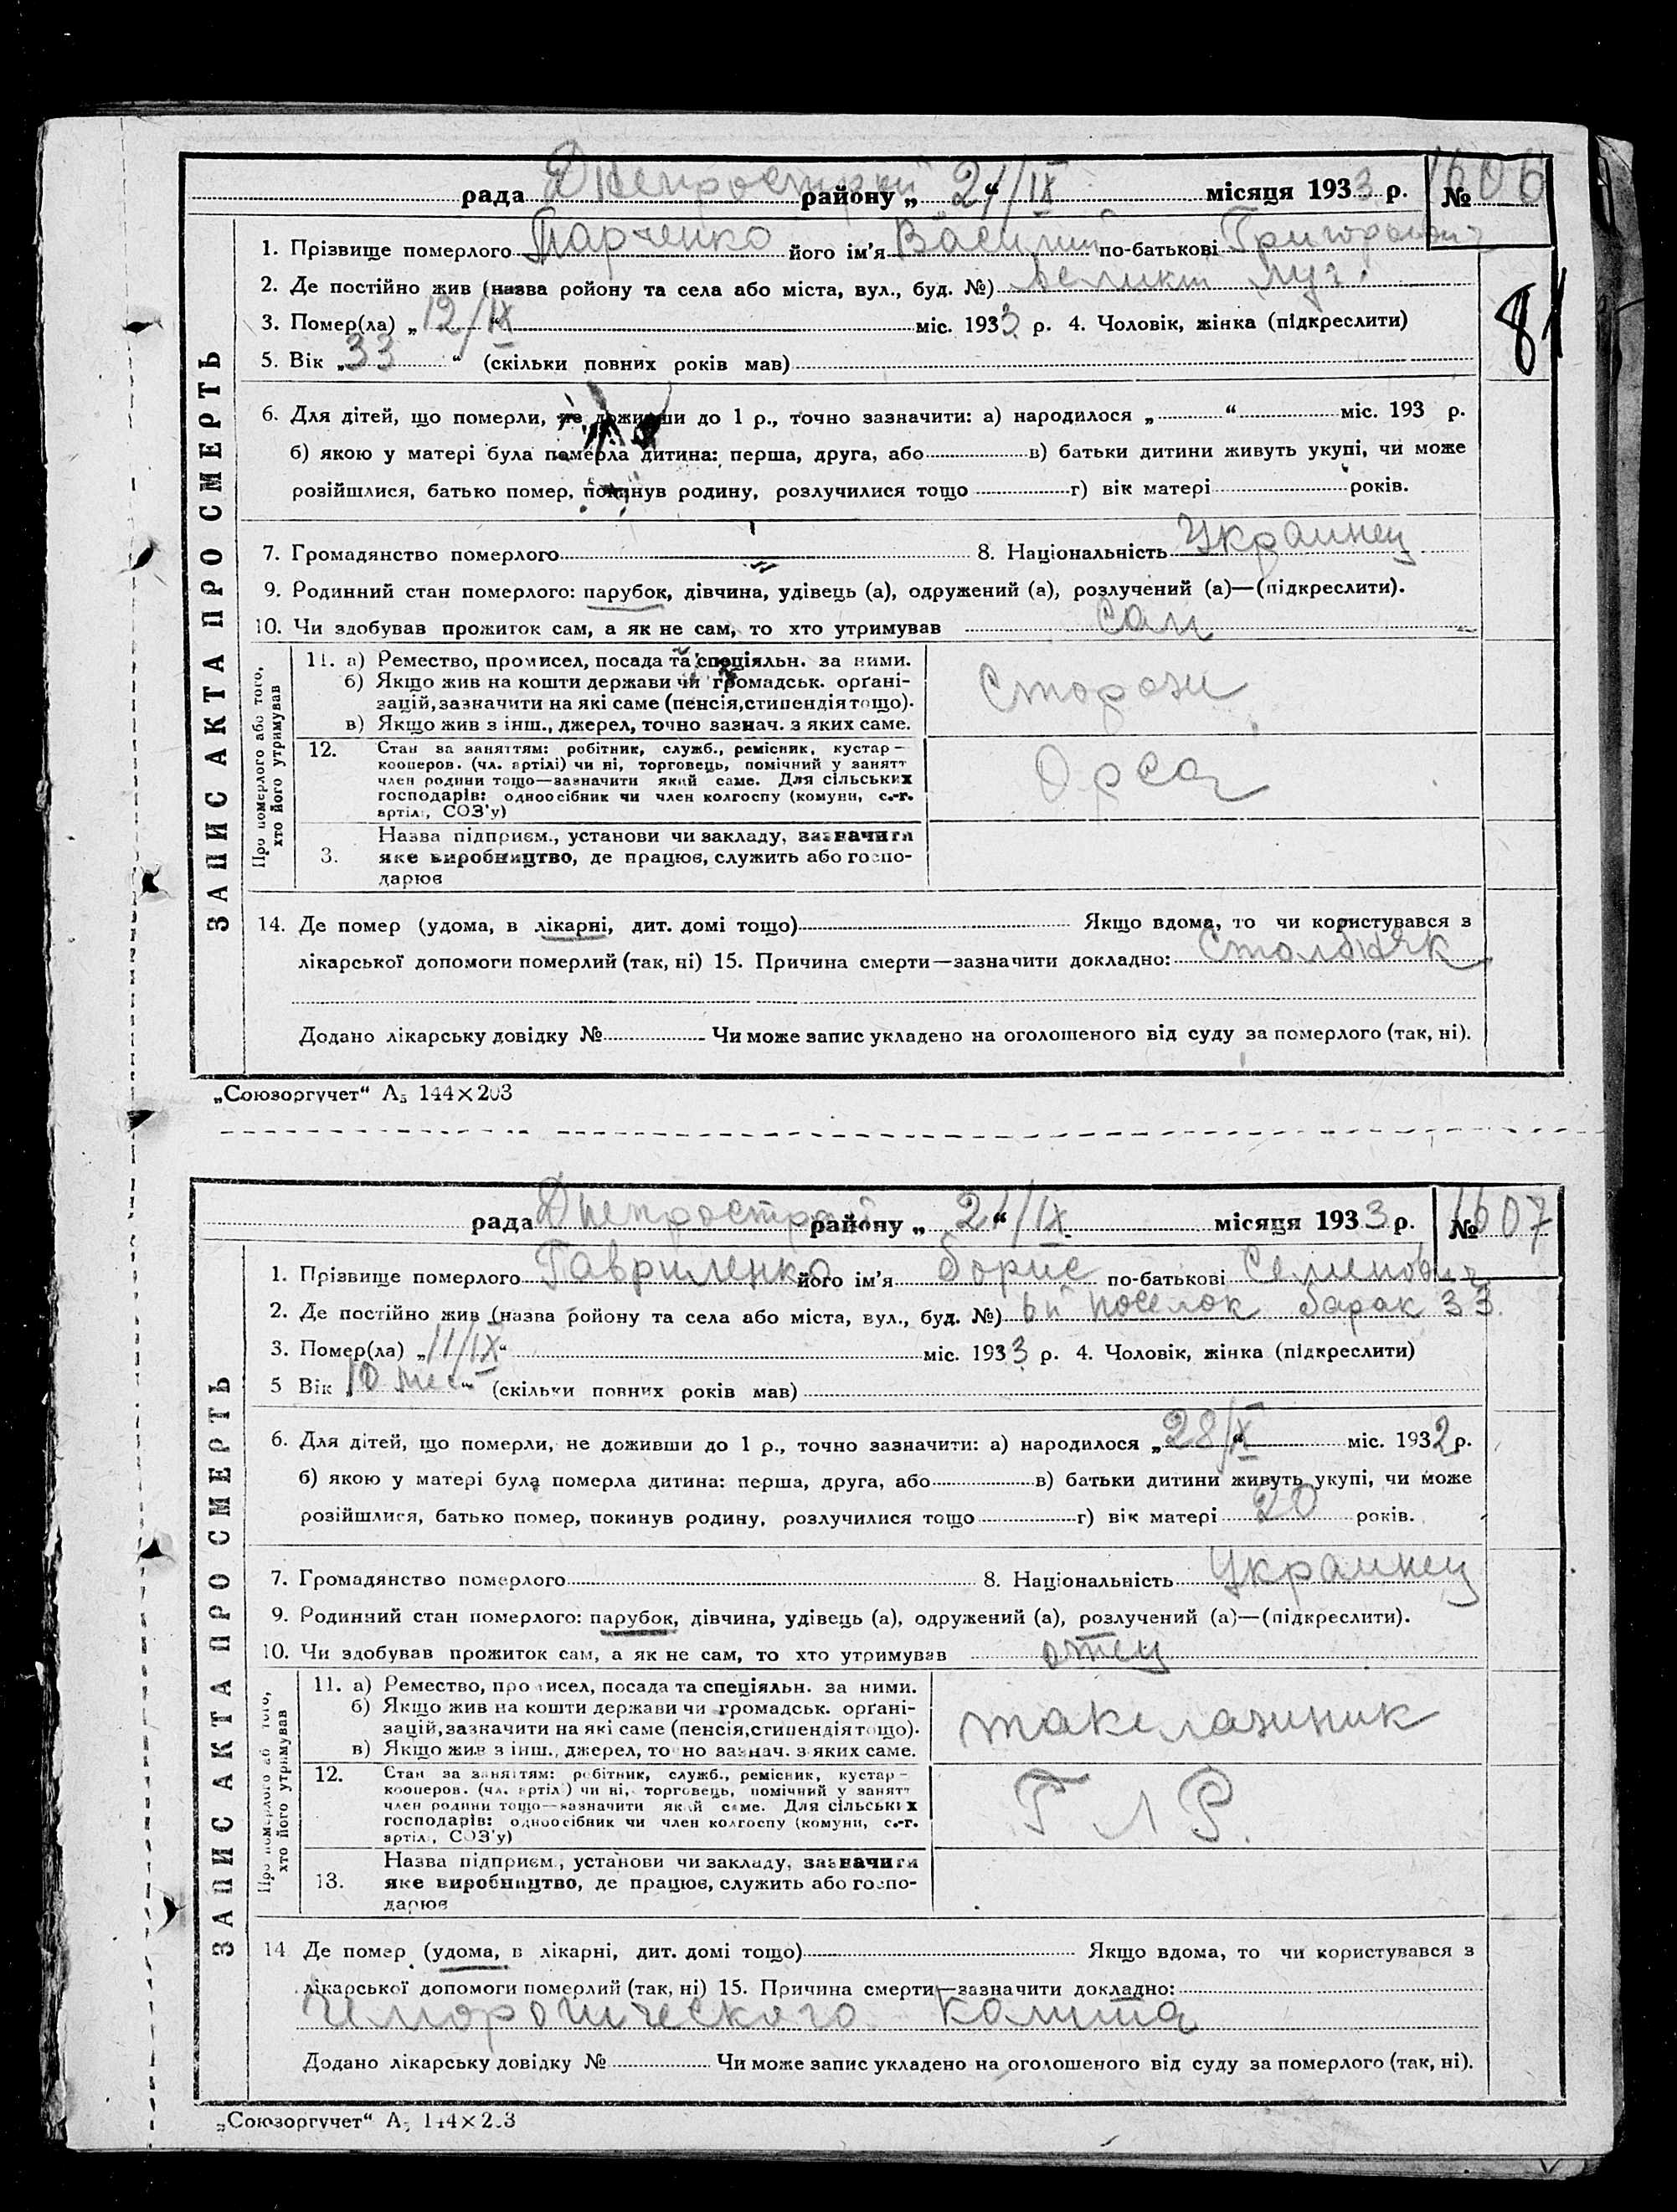 рада Днепрострой району „ 21/IX “ місяця 1933 р. № 1606
1. Прізвище померлого Тарченко його ім’я Василий по-батькові Григорович
2. Де постійно жив (назва ройону та села або міста, вул., буд. №) Великий луг.
3. Помер(ла) „ 12/IX “ міс. 1933 р. 4. Чоловік, жінка (підкреслити)
81
5. Вік „ 33 “ (скільки повних років мав)
6. Для дітей, що померли, не доживши до 1 р., точно зазначити: а) народилося „ “ міс. 193 р.
б) якою у матері була померла дитина: перша, друга, або в) батьки дитини живуть укупі, чи може
розійшлися, батько помер, покинув родину, розлучилися тощо г) вік матері років.
7. Громадянство померлого 8. Національність Украинец
9. Родинний стан померлого: парубок, дівчина, удівець (а), одружений (а), розлучений (а)—(підкреслити).
10. Чи здобував прожиток сам, а як не сам, то хто утримував сам
ЗАПИС АКТА ПРО СМЕРТЬ
Про померлого або того,
хто його утримував
11. а) Ремество, промисел, посада та спеціяльн. за ними.
б) Якщо жив на кошти держави чи громадськ. орґані-
зацій, зазначити на які саме (пенсія, стипендія тощо).
в) Якщо жив з інш., джерел, точно зазнач. з яких саме.
Сторож
12. Стан за заняттям: робітник, служб., ремісник, кустар—
кооперов. (чл. артілі) чи ні, торговець, помічний у занятт
член родини тощо—зазначити який саме. Для сільських
господарів: одноосібник чи член колгоспу (комуни, с.-г.
артілі, СОЗ’у)
Орса
3. Назва підприєм., установи чи закладу, зазначити
яке виробництво, де працює, служить або госпо-
дарює
14. Де помер (удома, в лікарні, дит. домі тощо) Якщо вдома, то чи користувався з
лікарської допомоги померлий (так, ні) 15. Причина смерти—зазначити докладно: Столбняк
Додано лікарську довідку № Чи може запис укладено на оголошеного від суду за померлого (так, ні).
„Союзоргучет“ А5 144×203
рада Днепрострой району „ 21/IX “ місяця 1933 р. № 1607
1. Прізвище померлого Гавриленко його ім’я Борис по-батькові Семенович
2. Де постійно жив (назва ройону та села або міста, вул., буд. №) 6й поселок барак 33.
3. Помер(ла) „ 11/IX “ міс. 1933 р. 4. Чоловік, жінка (підкреслити)
5 Вік „ 10 мес. “ (скільки повних років мав)
6. Для дітей, що померли, не доживши до 1 р., точно зазначити: а) народилося „ 28/X “ міс. 1932 р.
б) якою у матері була померла дитина: перша, друга, або в) батьки дитини живуть укупі, чи може
розійшлися, батько помер, покинув родину, розлучилися тощо г) вік матері 20 років.
7. Громадянство померлого 8. Національність Украинец
9. Родинний стан померлого: парубок, дівчина, удівець (а), одружений (а), розлучений (а)—(підкреслити).
10. Чи здобував прожиток сам, а як не сам, то хто утримував отец
ЗАПИС АКТА ПРО СМЕРТЬ
Про померлого або того,
хто його утримував
11. а) Ремество, промисел, посада та спеціяльн. за ними.
б) Якщо жив на кошти держави чи громадськ. орґані-
зацій, зазначити на які саме (пенсія, стипендія тощо).
в) Якщо жив з інш., джерел, точно зазнач. з яких саме.
такелажник
12. Стан за заняттям: робітник, служб., ремісник, кустар—
кооперов. (чл. артілі) чи ні, торговець, помічний у занятт
член родини тощо—зазначити який саме. Для сільських
господарів: одноосібник чи член колгоспу (комуни, с.-г.
артілі, СОЗ’у)
Г Л Р.
13. Назва підприєм., установи чи закладу, зазначити
яке виробництво, де працює, служить або госпо-
дарює
14 Де помер (удома, в лікарні, дит. домі тощо) Якщо вдома, то чи користувався з
лікарської допомоги померлий (так, ні) 15. Причина смерти—зазначити докладно:
колита
Додано лікарську довідку № Чи може запис укладено на оголошеного від суду за померлого (так, ні).
„Союзоргучет“ А5 144×203